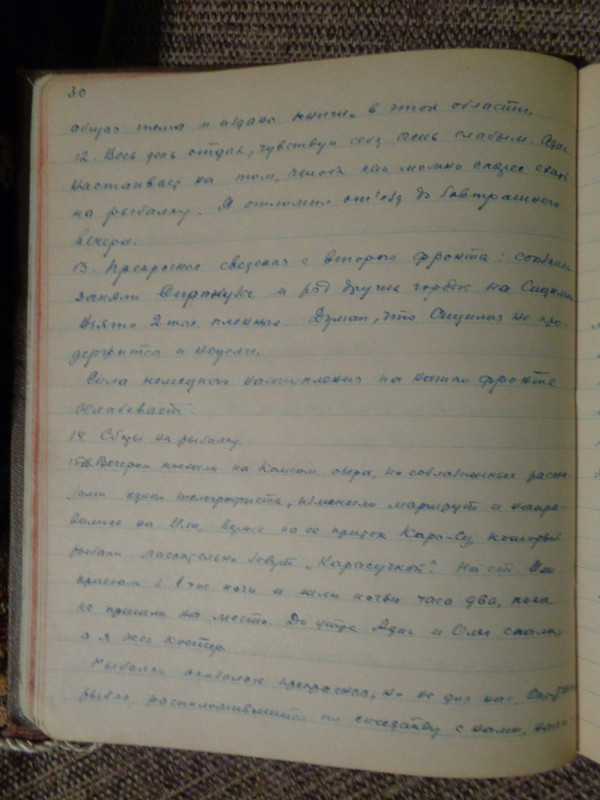 30
общая тема и издано книги, в этой области.
12. Весь день отдых, чувствуя себя очень слабым. Адик
настаивает на том, чтобы как можно скорее ехать
на рыбалку. Я отложил отъезд до завтрашнего
вечера.
13. Прекрасные сведения с второго фронта: союзники
заняли Сиракузы и ряд других городов на Сицилии
Взято 2 тыс. пленных. Думаю, что Сицилия не про-
держится и недели.
Сила немецкого наступления на нашем фронте
ослабевает.
14. Сборы на рыбалку.
15. Вечером поехали на Комсом. озера, но соблазненные расска-
зами одного телеграфиста, изменили маршрут и напра-
вились на Или, вернее на ее приток Кара-Су, который
рыбаки ласкательно зовут "Карасучкой". На ст. Или
приехали в 1 час ночи и шли ночью часа два, пока
не пришли на место. До утра Адик и Оля спали,
а я жег костер.
Рыбалка оказалась прекрасной, но не для нас.
рывно расположившиеся по соседству с нами,